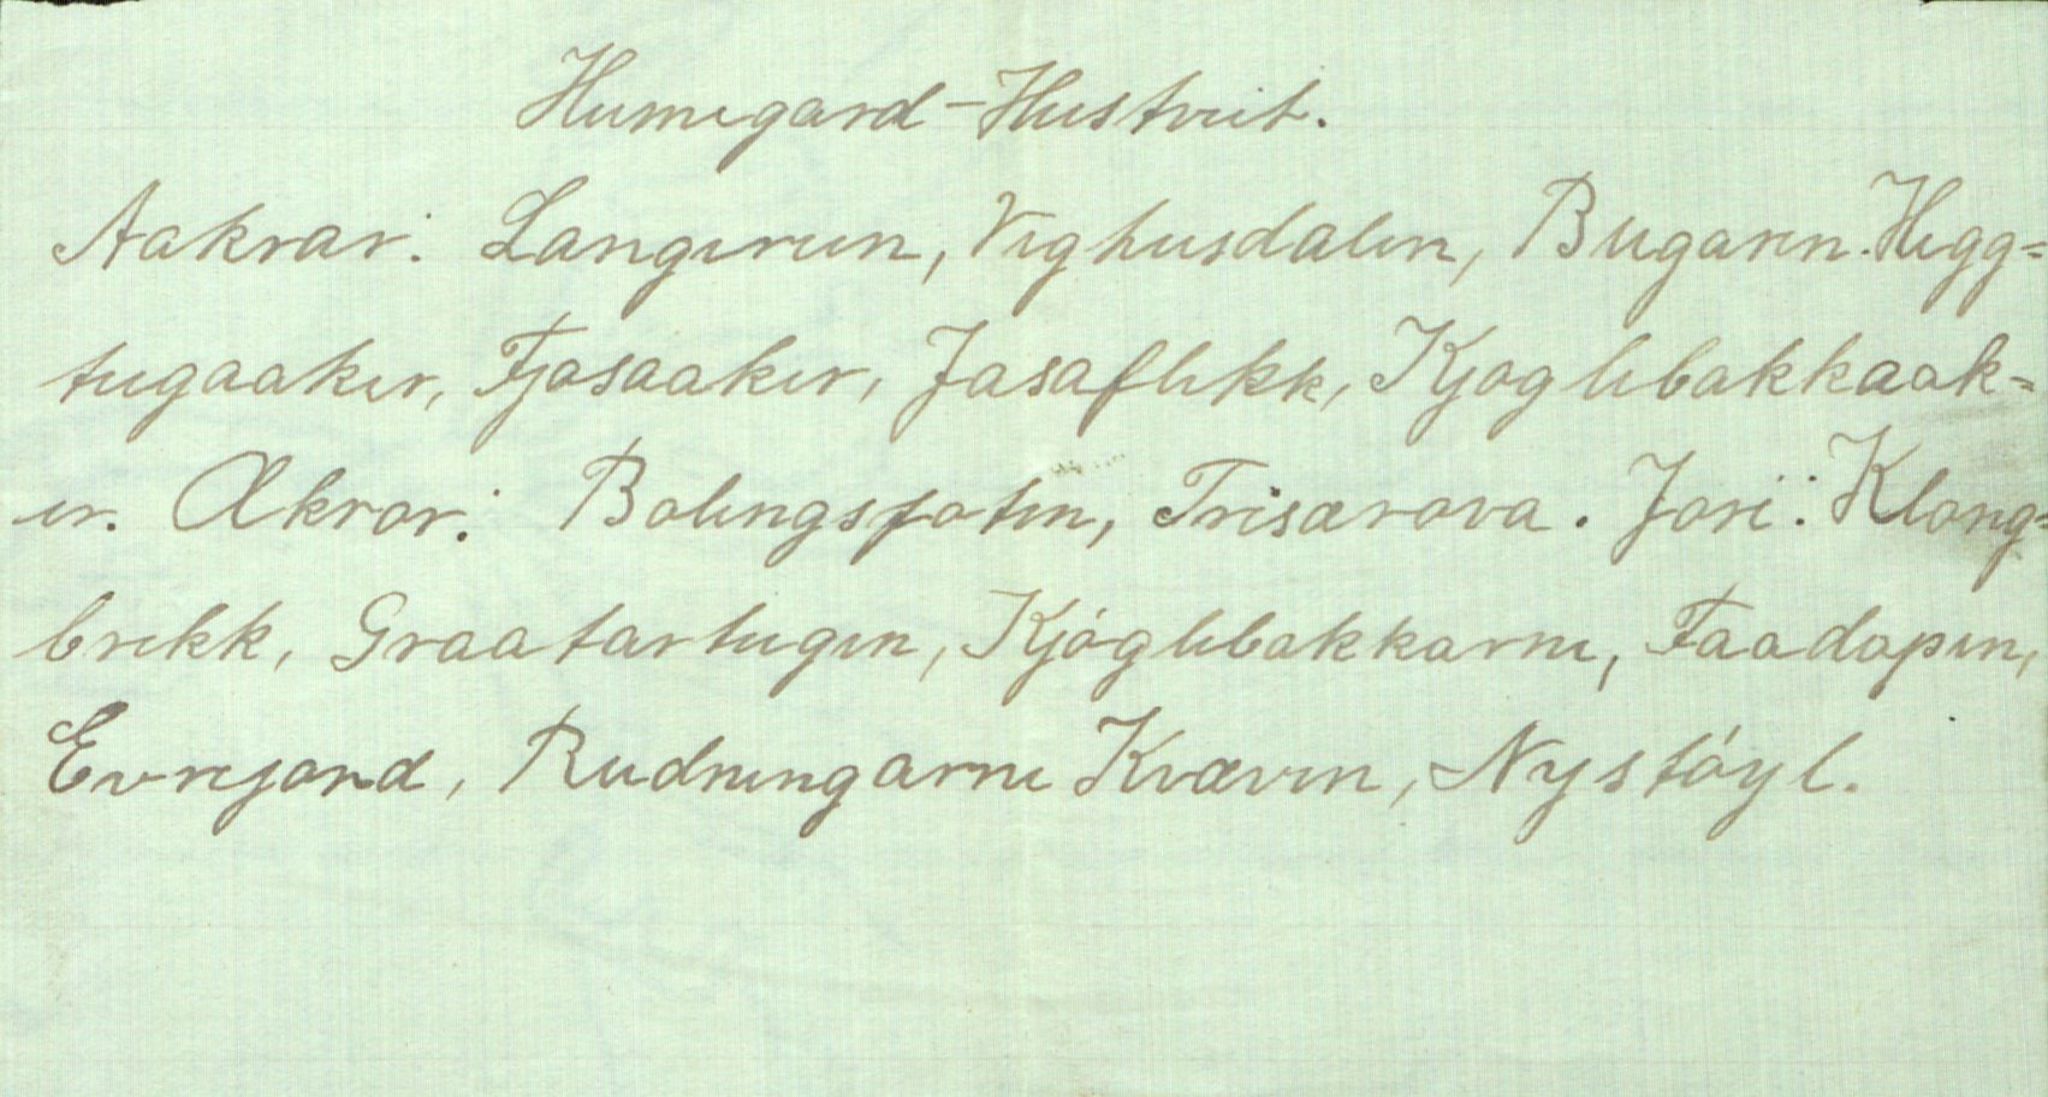 Humegard-Hustveit.
Aakrar: Langerun, Veghusdalen, Bugaren. Hegg=
tugaaker, Fjosaaker, Jasaflekk, Kjoglebakkaak=
er. Ækrar: Bolingsfoten, Trisarova. Jori: Klong=
brekk, Graatartugen, Kjóglebakkarne, Faadapen,
Evrejord, Rudningarne Kvæven, Nystóyl.